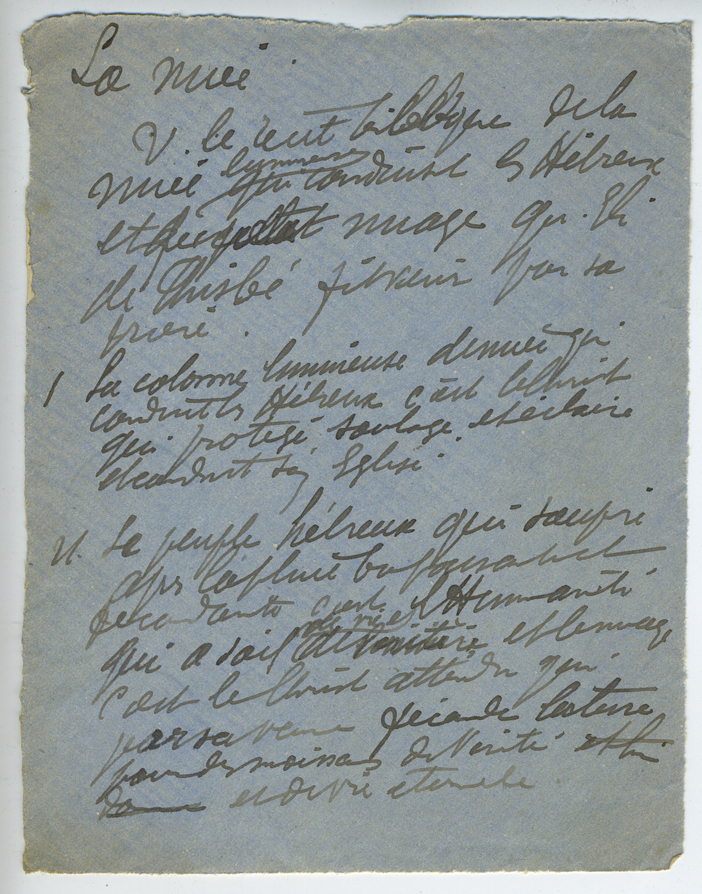 La nuée
V. le récit biblique de la
nuée lumineuse qui conduisit les Hébreux
et nuage qu'Eli
de Thisbé fit venir par sa
prière.
I La colonne lumineuse de nuée qui
conduit les Hébreux c'est le Christ
qui protège soulage et éclaire
et conduit son Eglise.
II. Le peuple hébreux qui soupire
après la pluie bienfaisante et
fécondante c'est l'Humanité
qui a soif de vie et le nuage
c'est le Christ attendu qui
par sa venue féconde la terre
pour des moissons de Vérité et lui
donne et de vie éternelle